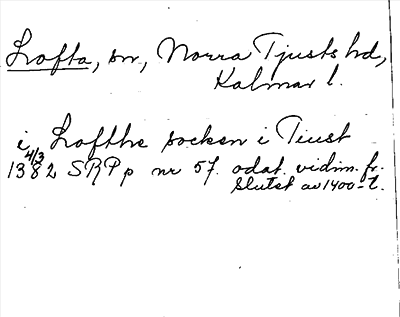 Lofta, sn, Norra Tjusts hd,
Kalmar l.
i Lofthe socken i Tiust
4/3
1382 SRPp nr 57. odat. vidim. fr.
slutet av 1400-t.